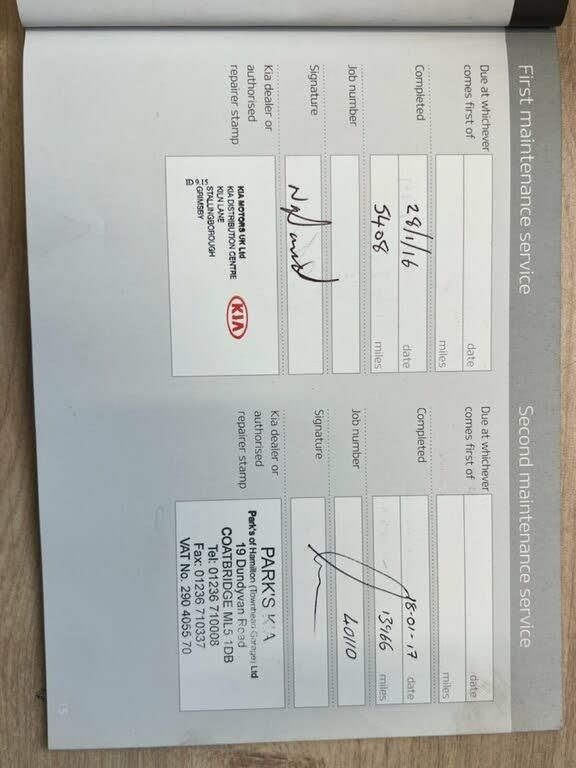 First maintenance service
Due at whichever
comes first of
date
miles
Completed
28/1/16
date
5408
miles
Job number
Signature
Kia dealer or
authorised
repairer stamp
KIA MOTORS UK Ltd
KIA DISTRIBUTION CENTRE
KILN LANE
STALLINGBOROUGH
GRIMSBY
KIA
Second maintenance service
Due at whichever
comes first of
date
miles
Completed
18-01-17
date
13966
miles
Job number
40110
Signature
Kia dealer or
authorised
repairer stamp
PARK'S KIA
Park's of Hamilton (Townhead Garage) Ltd
19 Dundyvan Road
COATBRIDGE ML5 1DB
Tel: 01236 710008
Fax: 01236 710337
VAT No. 290 4055 70
15